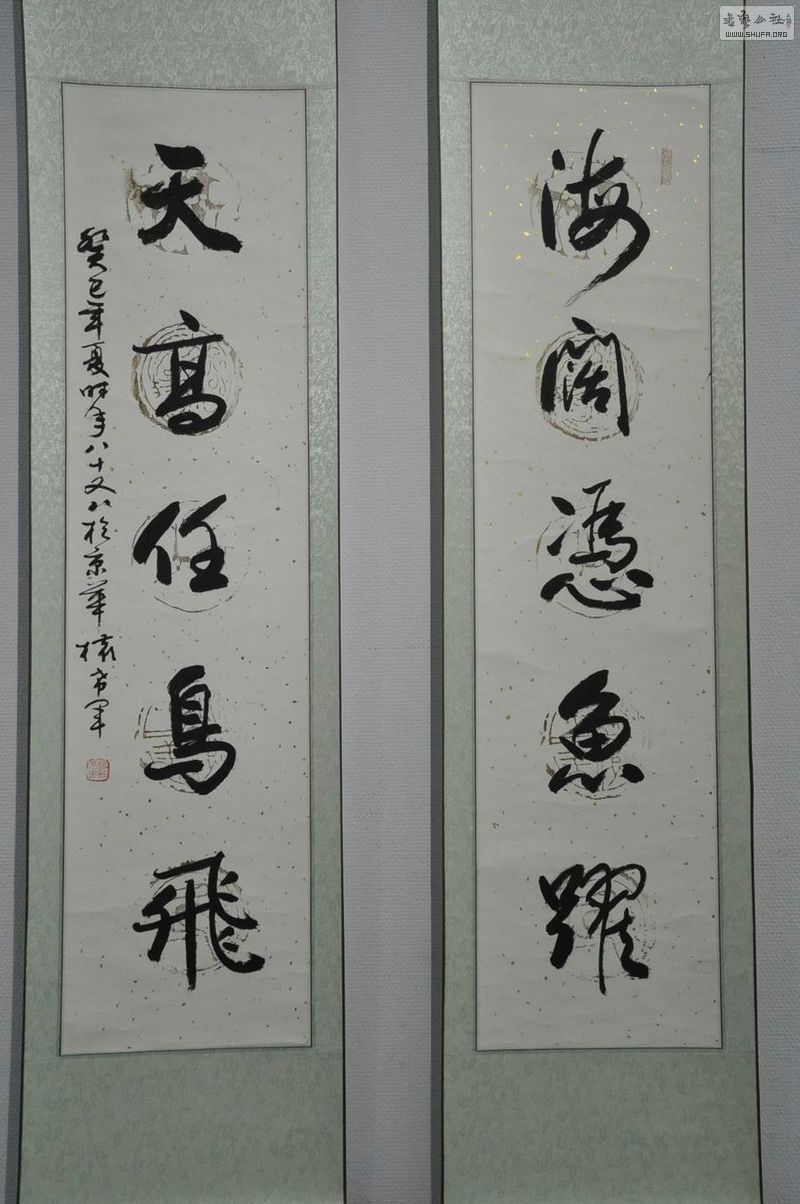 海闊憑魚躍
天高任鳥飛
癸巳年夏時年八十又八於京華
书艺公社
WWW.SHUFA.ORG